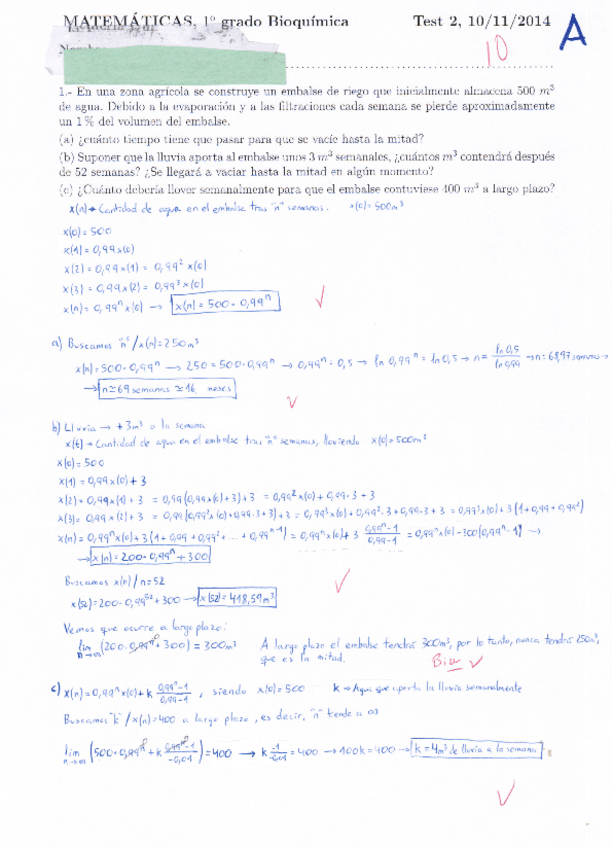 MATEMÁTICAS, 1º grado Bioquímica Test 2, 10/11/2014
10 A
1.- En una zona agrícola se construye un embalse de riego que inicialmente almacena 500 m³
de agua. Debido a la evaporación y a las filtraciones cada semana se pierde aproximadamente
un 1% del volumen del embalse.
(a) ¿cuánto tiempo tiene que pasar para que se vacíe hasta la mitad?
(b) Suponer que la lluvia aporta al embalse unos 3 m³ semanales, ¿cuántos m³ contendrá después
de 52 semanas? ¿Se llegará a vaciar hasta la mitad en algún momento?
(c) ¿Cuánto debería llover semanalmente para que el embalse contuviese 400 m³ a largo plazo?
x(n) → Cantidad de agua en el embalse tras "n" semanas. x(0)=500m³
x(0)=500
x(1)=0,99x(0)
x(2)=0,99x(1)= 0,99² x(0)
x(3)=0,99x(2)= 0,99³ x(0)
x(n)= 0,99ⁿ x(0) → x(n)=500·0,99ⁿ
a) Buscamos "n" / x(n)=250m³
x(n)=500·0,99ⁿ → 250=500·0,99ⁿ → 0,99ⁿ=0,5 → ln 0,99ⁿ = ln 0,5 → n= ln 0,5 / ln 0,99 → n= 68,97 semanas →
→ n≃69 semanas ≃16 meses
b) Lluvia → +3m³ a la semana
x(t) → Cantidad de agua en el embalse tras "n" semanas, lloviendo x(0)=500m³
x(0)=500
x(1)=0,99x(0)+3
x(2)=0,99x(1)+3 = 0,99(0,99x(0)+3)+3 = 0,99²x(0)+0,99·3+3
x(3)=0,99x(2)+3 = 0,99(0,99²x(0)+0,99·3+3)+3 = 0,99³x(0)+0,99²·3+0,99·3+3 = 0,99³x(0)+3(1+0,99+0,99²)
x(n)=0,99ⁿx(0)+3(1+0,99+0,99²+...+0,99ⁿ⁻¹)= 0,99ⁿx(0)+3 (0,99ⁿ-1)/(0,99-1) = 0,99ⁿx(0)-300(0,99ⁿ-1) →
→ x(n)=200·0,99ⁿ+300
Buscamos x(n)/n=52
x(52)=200·0,99⁵²+300 → x(52)=418,59m³
Vemos que ocurre a largo plazo:
lim n→∞ (200·0,99ⁿ+300)=300m³ A largo plazo el embalse tendrá 300m³, por lo tanto, nunca tendrá 250m³,
que es la mitad.
Bien
c) x(n)=0,99ⁿx(0)+k (0,99ⁿ-1)/(0,99-1) , siendo x(0)=500 k → Agua que aporta la lluvia semanalmente
Buscamos "k" / x(n)=400 a largo plazo, es decir, "n" tiende a ∞
lim n→∞ (500·0,99ⁿ+k (0,99ⁿ-1)/(-0,01))=400 → k -1/-0,01 =400 → 100k=400 → k=4m³ de lluvia a la semana